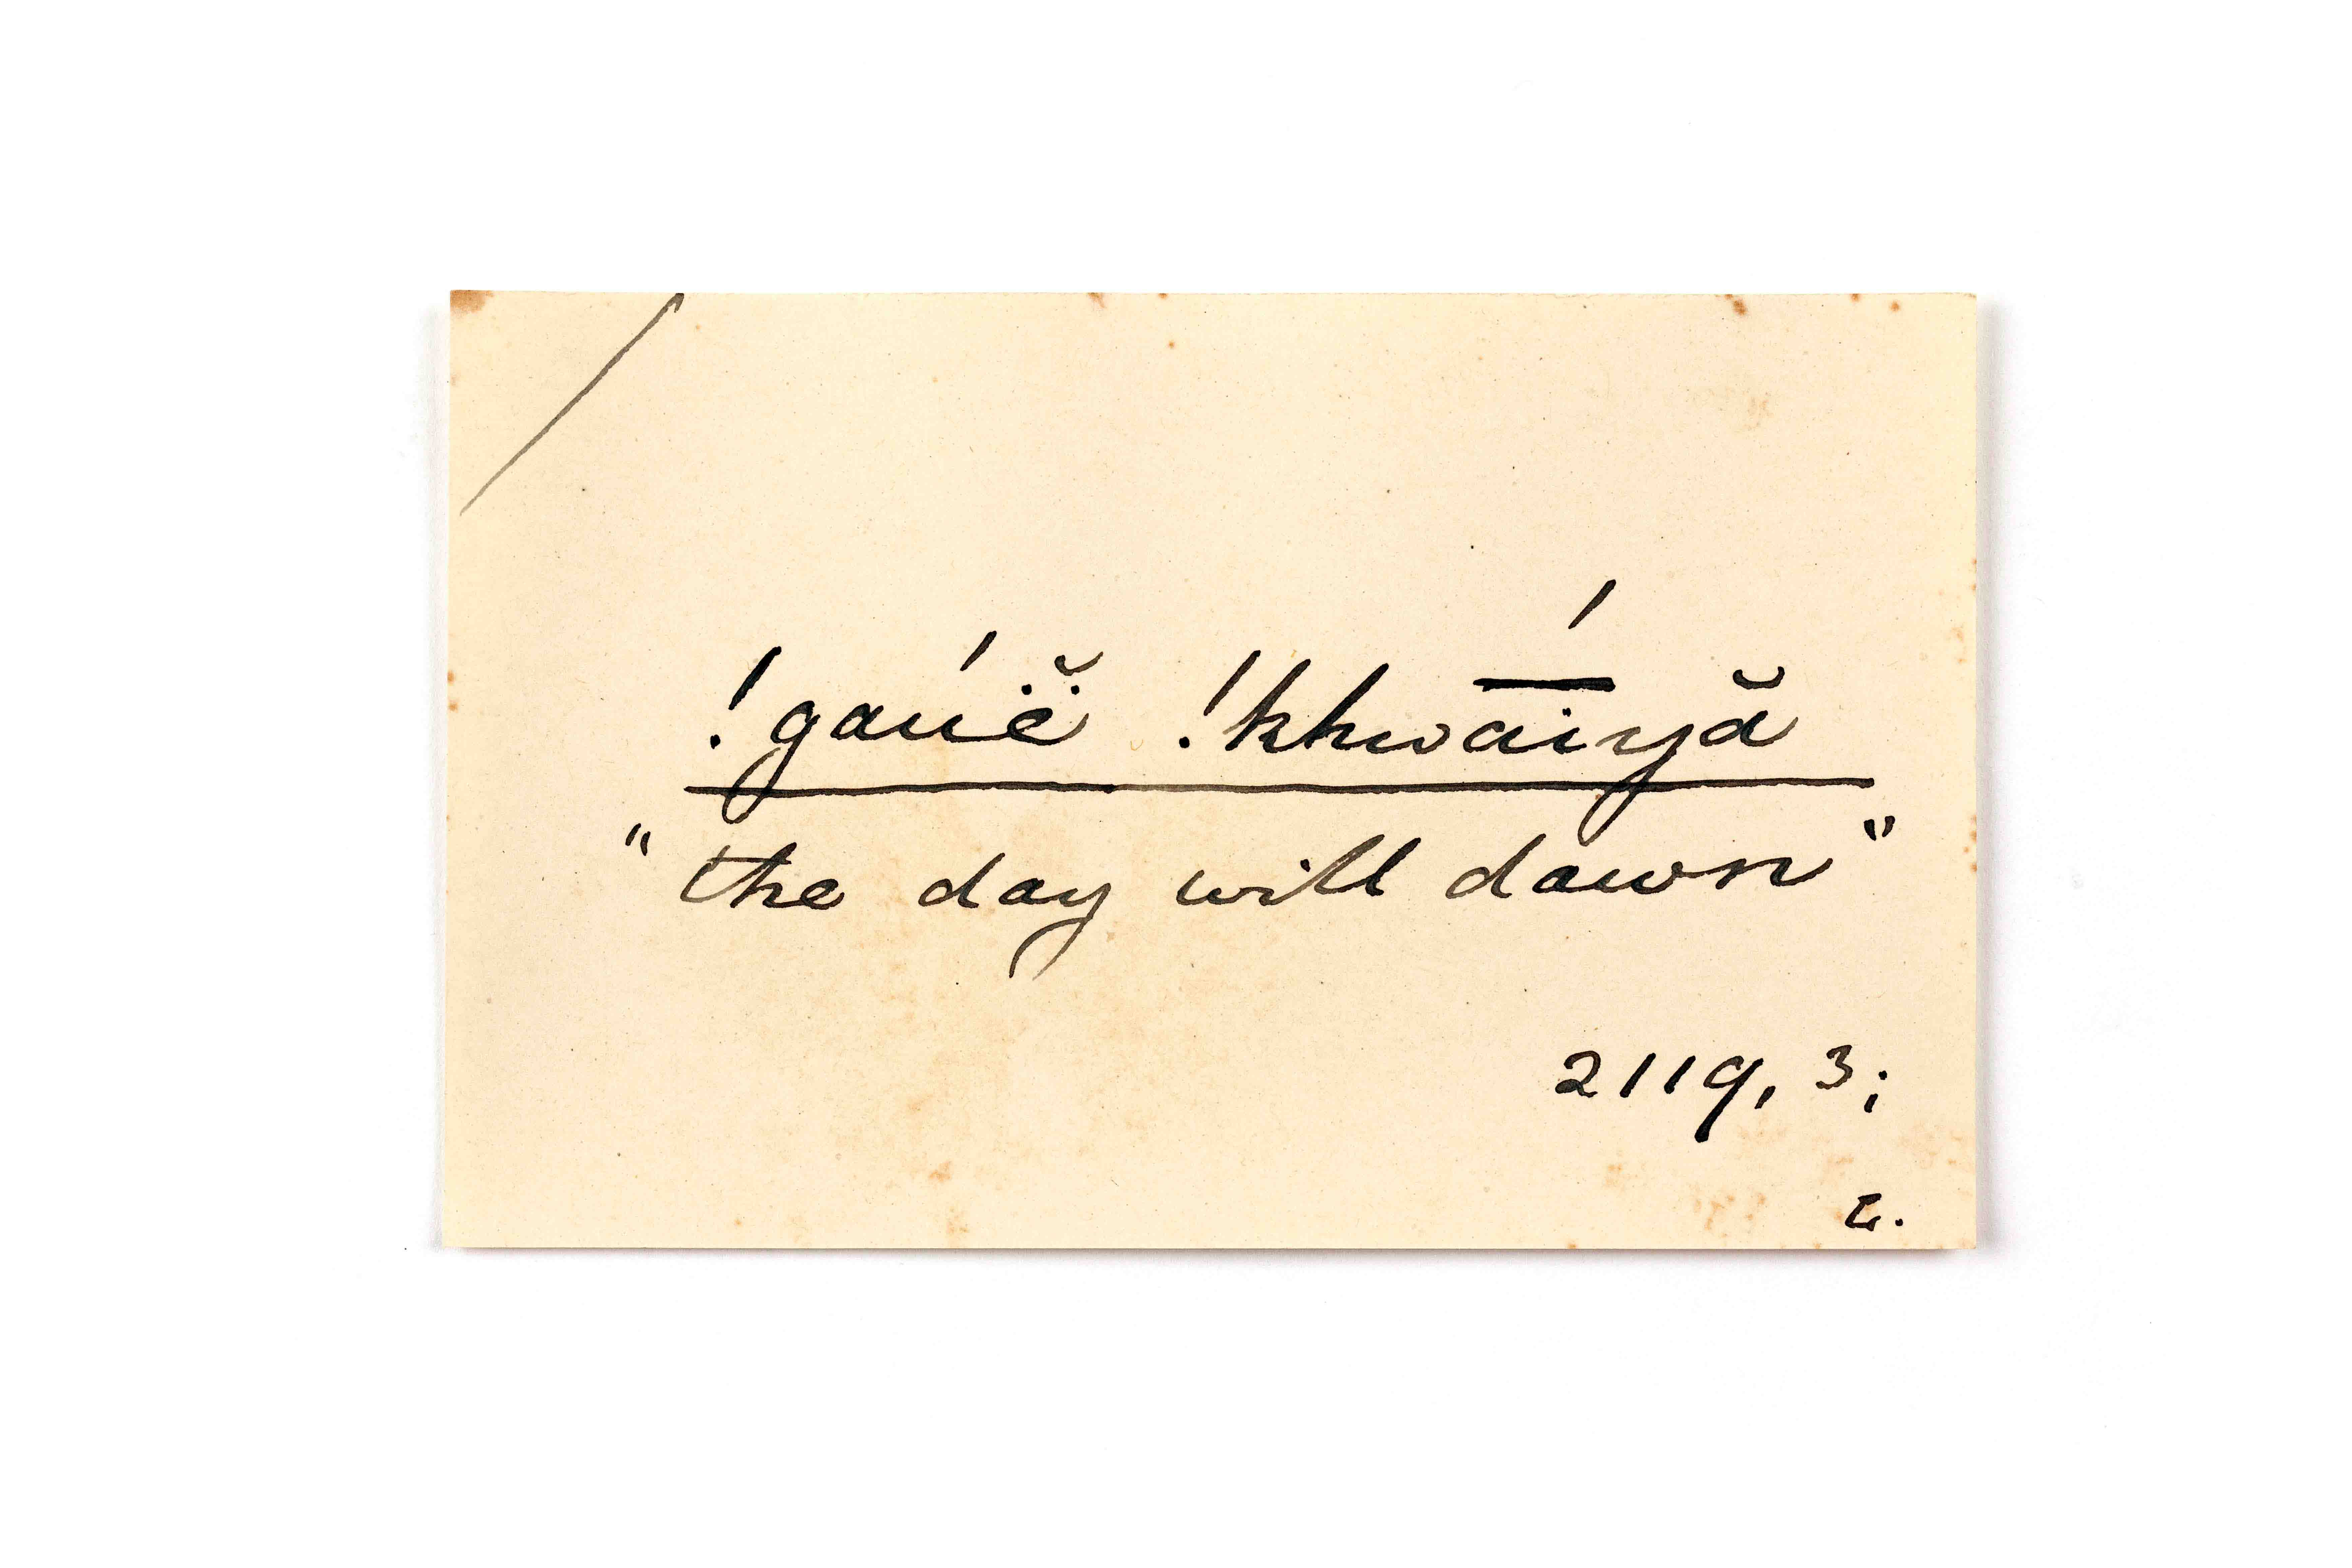 !gaúë̆ !khwā́iyă
"the day will dawn"
2119, 3;
L.